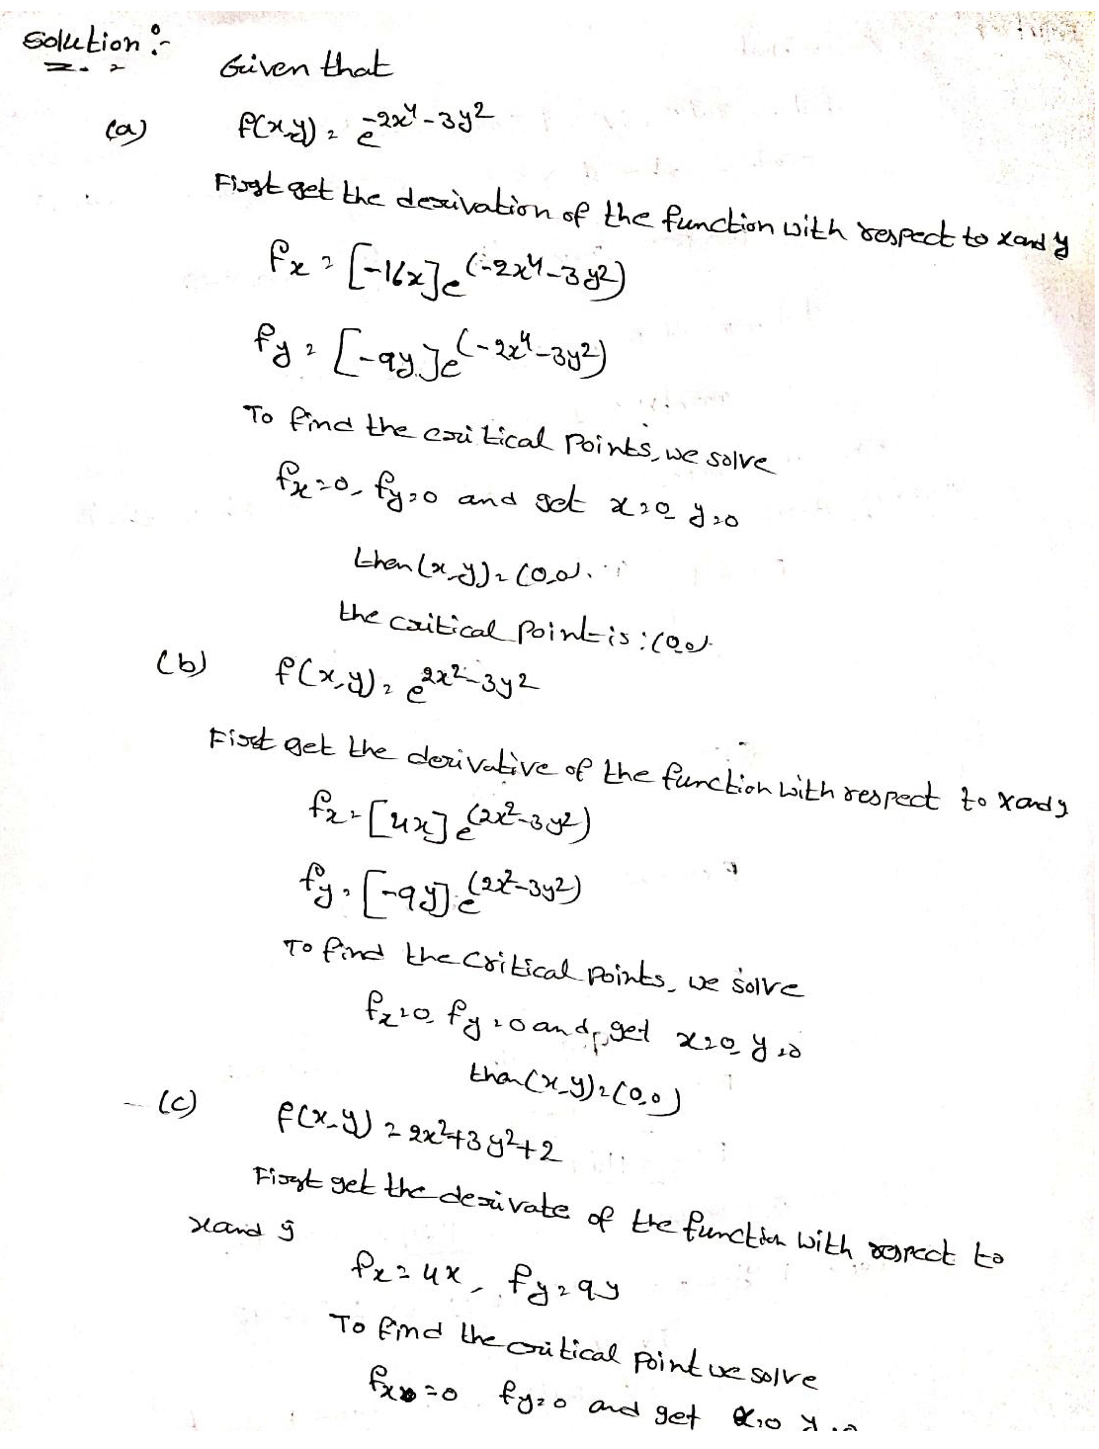 Solution :-
Given that
(a) f(x,y) = e^{-2x^4-3y^2}
First get the derivation of the function with respect to x and y
f_x = [-16x] e^{(-2x^4-3y^2)}
f_y = [-9y] e^{(-2x^4-3y^2)}
To find the critical points, we solve
f_x=0, f_y=0 and get x=0, y=0
then (x,y) = (0,0).
the critical point is : (0,0).
(b) f(x,y) = e^{2x^2-3y^2}
First get the derivative of the function with respect to x and y
f_x = [4x] e^{(2x^2-3y^2)}
f_y = [-9y] e^{(2x^2-3y^2)}
To find the critical points, we solve
f_x=0, f_y=0 and get x=0, y=0
then (x,y) = (0,0)
(c) f(x,y) = 2x^2+3y^2+2
First get the derivate of the function with respect to
x and y
f_x = 4x, f_y = 9y
To find the critical point we solve
f_x=0 f_y=0 and get x=0 y=0